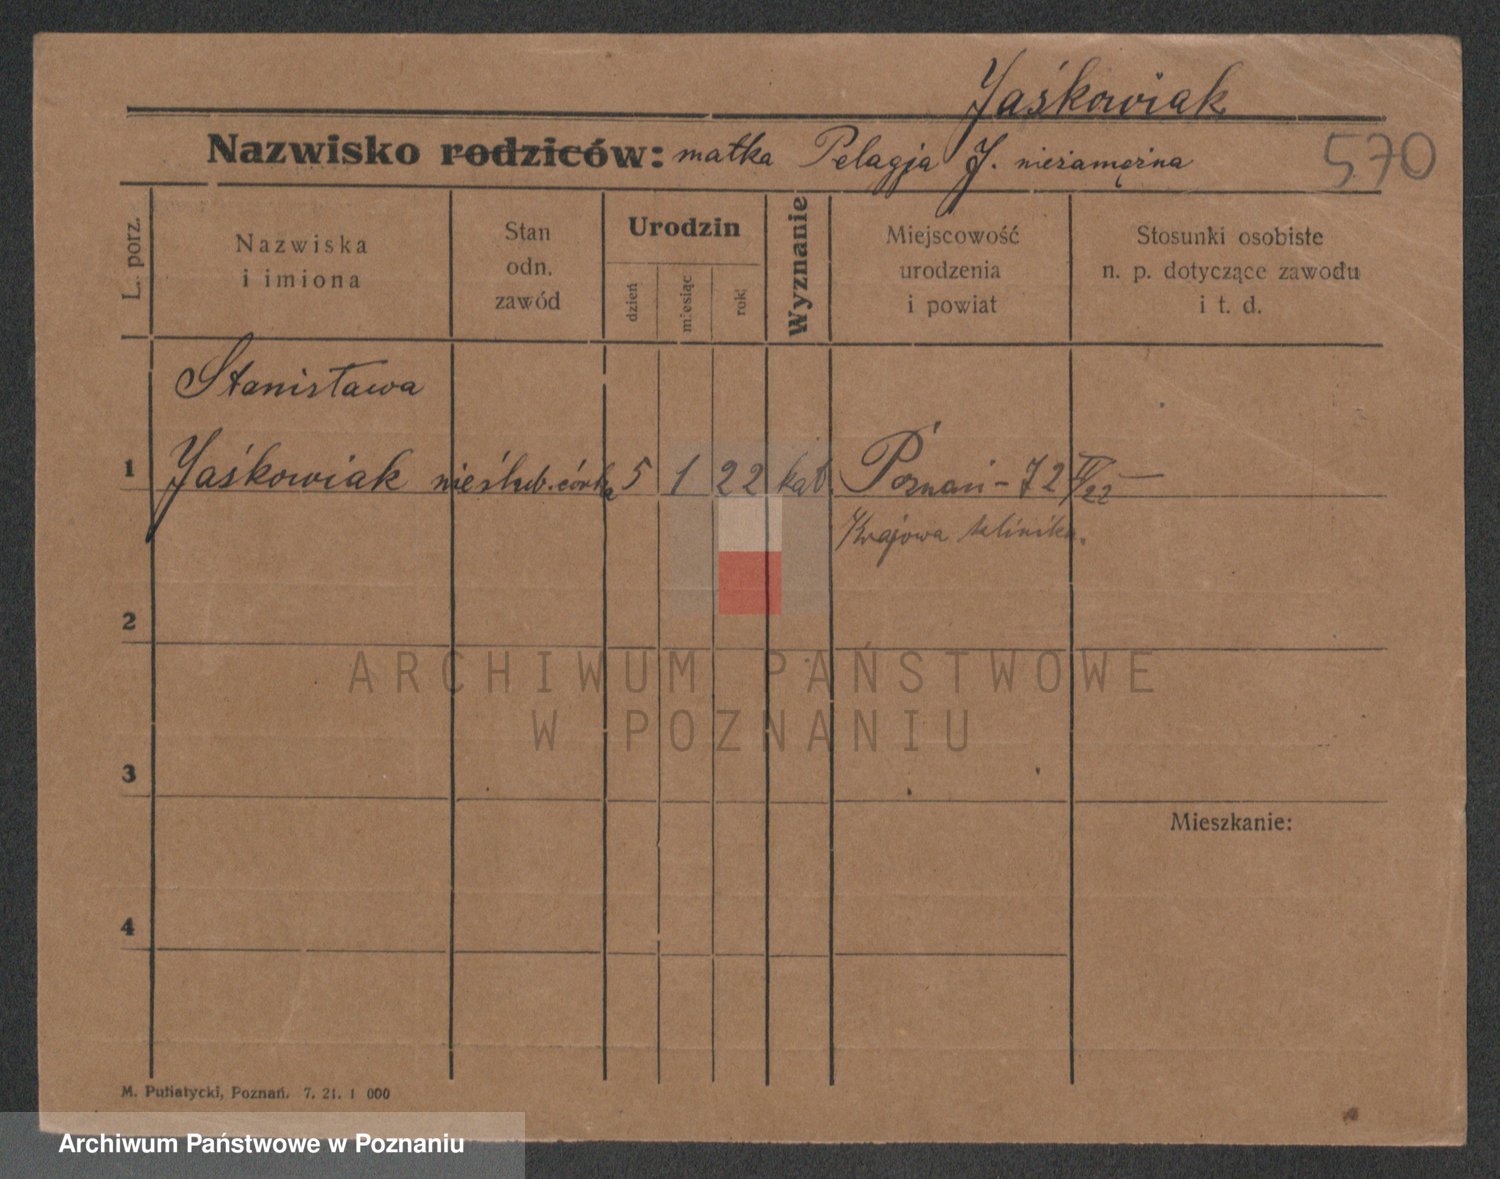 Jaśkowiak
Nazwisko rodziców: matka Pelagja J. niezamężna
570
L. porz.
Nazwiska
i imiona
Stan
odn.
zawód
Urodzin
dzień
miesiąc
rok
Wyznanie
Miejscowość
urodzenia
i powiat
Stosunki osobiste
n. p. dotyczące zawodu
i t. d.
Stanisława
1 Jaśkowiak nieślub. córka 5 1 22 kat Poznań - 72
Krajowa klinika.
2
3
Mieszkanie:
4
M. Putiatycki, Poznań. 7. 21. 1 000
ARCHIWUM PAŃSTWOWE
W POZNANIU
Archiwum Państwowe w Poznaniu